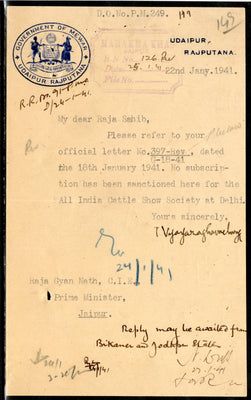 D.O.No.P.M.249.
GOVERNMENT OF MEWAR
UDAIPUR RAJPUTANA
UDAIPUR,
RAJPUTANA.
22nd Jany. 1941.
My dear Raja Sahib,
Please refer to your
official letter No. 397-Rev.
I-18-41
dated
the 18th January 1941. No subscrip-
tion has been sanctioned here for the
All India Cattle Show Society at Delhi.
Yours sincerely,
T Vijayaraghavacharya
24/1/41
Raja Gyan Nath, C.I.E.,
Prime Minister,
Jaipur.
Reply may be awaited from
Bikaner and Jodhpur States